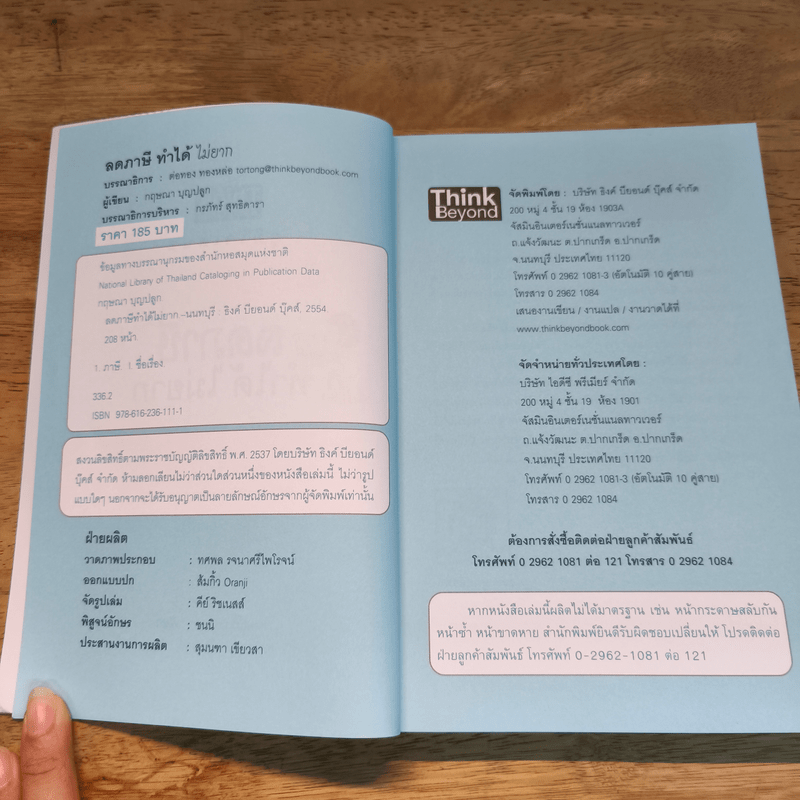 ลดภาษี ทำได้ ไม่ยาก
บรรณาธิการ : ต่อทอง ทองหล่อ tortong@thinkbeyondbook.com
ผู้เขียน : กฤษณา บุญปลูก
บรรณาธิการบริหาร : กรภัทร์ สุทธิดารา
ราคา 185 บาท
ข้อมูลทางบรรณานุกรมของสำนักหอสมุดแห่งชาติ
National Library of Thailand Cataloging in Publication Data
กฤษณา บุญปลูก
ลดภาษีทำได้ไม่ยาก –นนทบุรี : ธิงค์ บียอนด์ บุ๊คส์, 2554
208 หน้า
1. ภาษี 1. ชื่อเรื่อง
336.2
ISBN 978-616-236-111-1
สงวนลิขสิทธิ์ตามพระราชบัญญัติลิขสิทธิ์ พ.ศ. 2537 โดยบริษัท ธิงค์ บียอนด์
บุ๊คส์ จำกัด ห้ามลอกเลียนไม่ว่าส่วนใดส่วนหนึ่งของหนังสือเล่มนี้ ไม่ว่ารูป
แบบใดๆ นอกจากจะได้รับอนุญาตเป็นลายลักษณ์อักษรจากผู้จัดพิมพ์เท่านั้น
ฝ่ายผลิต
วาดภาพประกอบ : ทศพล รจนาศรีไพโรจน์
ออกแบบปก : ส้มกิ้ว Oranji
จัดรูปเล่ม : คีย์ ริชเนสส์
พิสูจน์อักษร : ชนนิ
ประสานงานการผลิต : สุมนฑา เขียวสา
Think
Beyond
จัดพิมพ์โดย : บริษัท ธิงค์ บียอนด์ บุ๊คส์ จำกัด
200 หมู่ 4 ชั้น 19 ห้อง 1903A
จัสมินอินเตอร์เนชั่นแนลทาวเวอร์
ถ.แจ้งวัฒนะ ต.ปากเกร็ด อ.ปากเกร็ด
จ.นนทบุรี ประเทศไทย 11120
โทรศัพท์ 0 2962 1081-3 (อัตโนมัติ 10 คู่สาย)
โทรสาร 0 2962 1084
เสนองานเขียน / งานแปล / งานวาดได้ที่
www.thinkbeyondbook.com
จัดจำหน่ายทั่วประเทศโดย :
บริษัท ไอดีซี พรีเมียร์ จำกัด
200 หมู่ 4 ชั้น 19 ห้อง 1901
จัสมินอินเตอร์เนชั่นแนลทาวเวอร์
ถ.แจ้งวัฒนะ ต.ปากเกร็ด อ.ปากเกร็ด
จ.นนทบุรี ประเทศไทย 11120
โทรศัพท์ 0 2962 1081-3 (อัตโนมัติ 10 คู่สาย)
โทรสาร 0 2962 1084
ต้องการสั่งซื้อติดต่อฝ่ายลูกค้าสัมพันธ์
โทรศัพท์ 0 2962 1081 ต่อ 121 โทรสาร 0 2962 1084
หากหนังสือเล่มนี้ผลิตไม่ได้มาตรฐาน เช่น หน้ากระดาษสลับกัน
หน้าซ้ำ หน้าขาดหาย สำนักพิมพ์ยินดีรับผิดชอบเปลี่ยนให้ โปรดติดต่อ
ฝ่ายลูกค้าสัมพันธ์ โทรศัพท์ 0-2962-1081 ต่อ 121